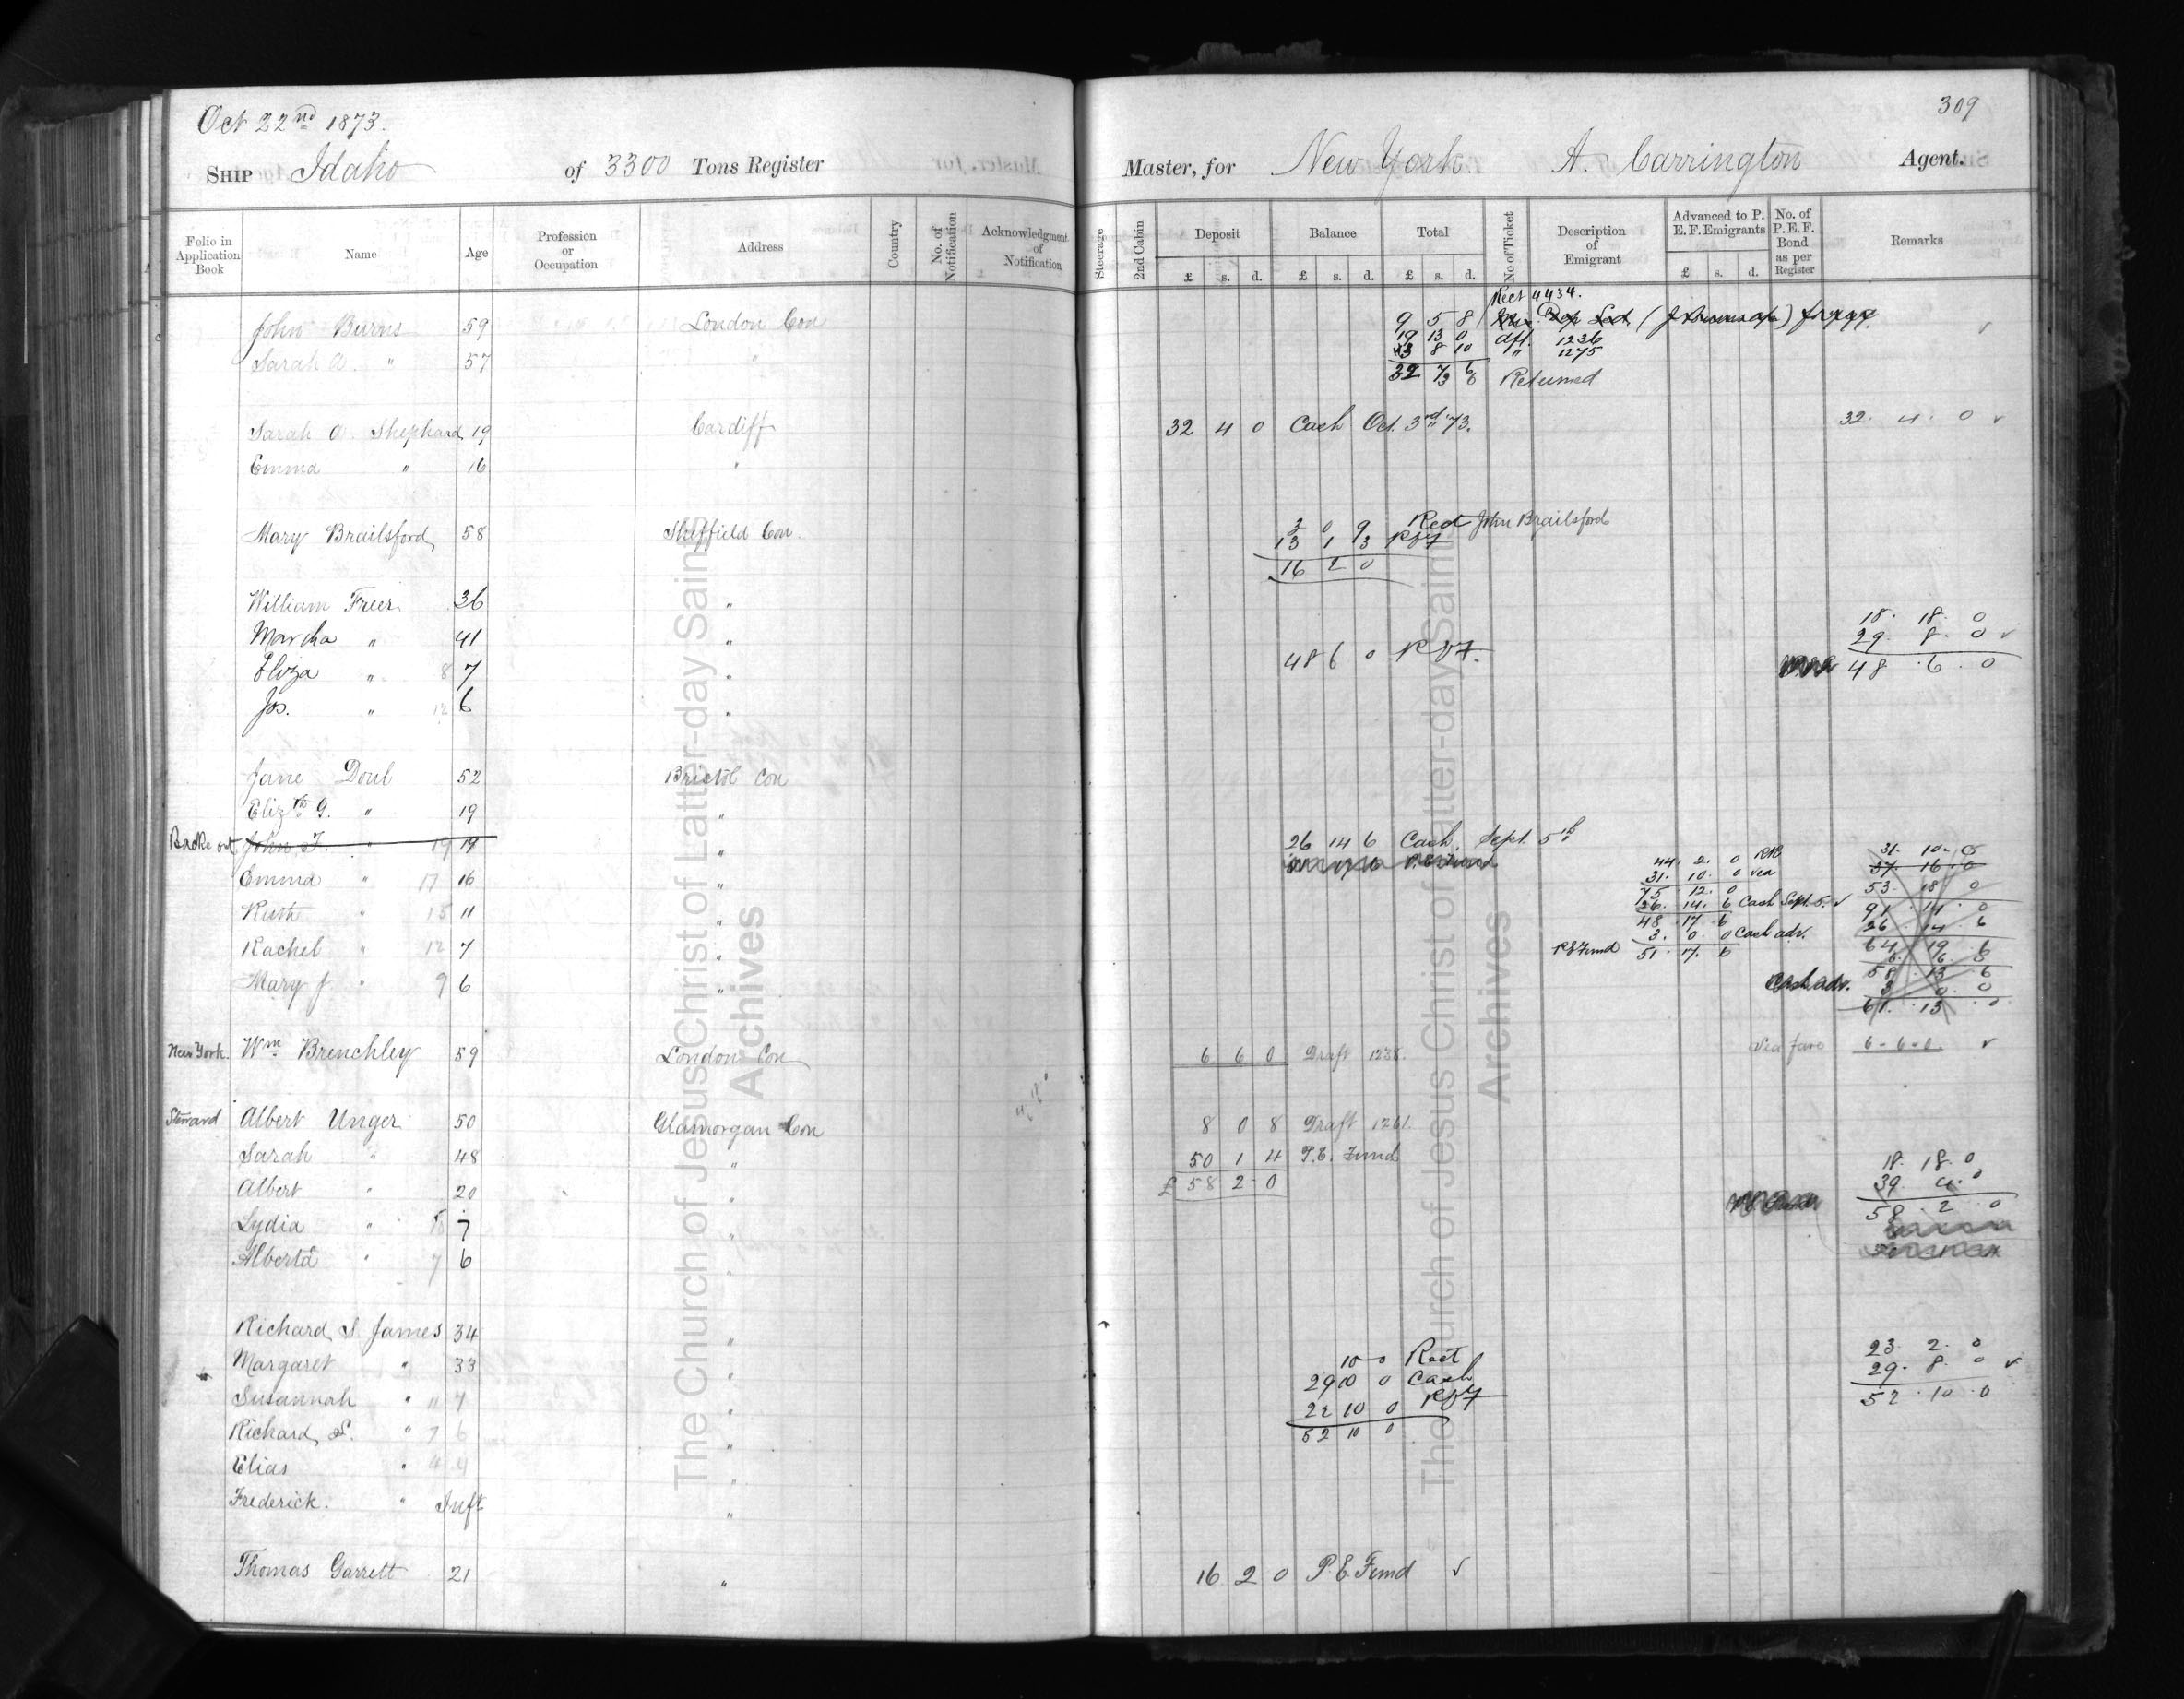 309
Oct 22nd 1873.
Ship Idaho of 3300 Tons Register Master, for New York. A. Carrington Agent.
Folio in Application Book Name Age Profession or Occupation Address Country No. of Notification Acknowledgment of Notification Steerage 2nd Cabin Deposit Balance Total No of Ticket Description of Emigrant Advanced to P. E. F. Emigrants No. of P. E. F. Bond as per Register Remarks
£ s. d. £ s. d. £ s. d. £ s. d.
Rect 4434.
John Burns 59 London Con 9 5 8
19 13 0 dft. 1236
Sarah A. " 57 " 3 8 10 " 1275
32 7 6 Returned
Sarah A. Shephard 19 Cardiff 32 4 0 Cash Oct. 3rd '73. 32. 4. 0 ✓
Emma " 16 "
Mary Brailsford 58 Sheffield Con. 3 0 9 Rect John Brailsford
13 1 3
16 2 0
William Freer 36 " 18. 18. 0
Martha " 41 " 29. 8. 0 ✓
Eliza " 8 7 " 48 6 0 48. 6. 0
Jos. " 12 6 "
Jane Doul 52 Bristol Con
Elizth G. " 19 "
Backe out John F. " 19 19 " 26 14 6 Cash, Sept. 5th
44. 2. 0 31. 10. 0
Emma " 17 16 " 31. 10. 0 37. 16. 0
75 12. 0 53. 18. 0
Ruth " 15 11 " 26. 14. 6 Cash Sept. 5. ✓ 91. 14. 0
48. 17. 6 26. 14. 6
Rachel " 12 7 " 3. 0. 0 Cash adv. 64. 19. 6
P E Fund 51. 17. 6
58. 13. 6
Mary J " 9 6 " Cash adv. 3. 0. 0
61. 13. 0
New York. Wm Brenchley 59 London Con 6 6 0 Draft 1238. 6. 6. 0 ✓
Steward Albert Unger 50 Glamorgan Con 8 0 8 Draft 1261.
Sarah " 48 " 50 1 4 P.E. Fund 18. 18. 0
Albert " 20 " £ 58 2 0 39. 4. 0
Lydia " 8 7 " 58. 2. 0
Alberta " 7 6 "
Richard S. James 34 "
Margaret " 33 " 10 0 Rect 23. 2. 0
Susannah " 11 7 " 29 10 0 Cash 29. 8. 0 ✓
22 10 0 52. 10. 0
Richard S. " 7 6 " 52 10 0
Elias " 4 4 "
Frederick. " Inft "
Thomas Garrett 21 " 16 2 0 P.E. Fund ✓
The Church of Jesus Christ of Latter-day Saints
Archives
The Church of Jesus Christ of Latter-day Saints
Archives